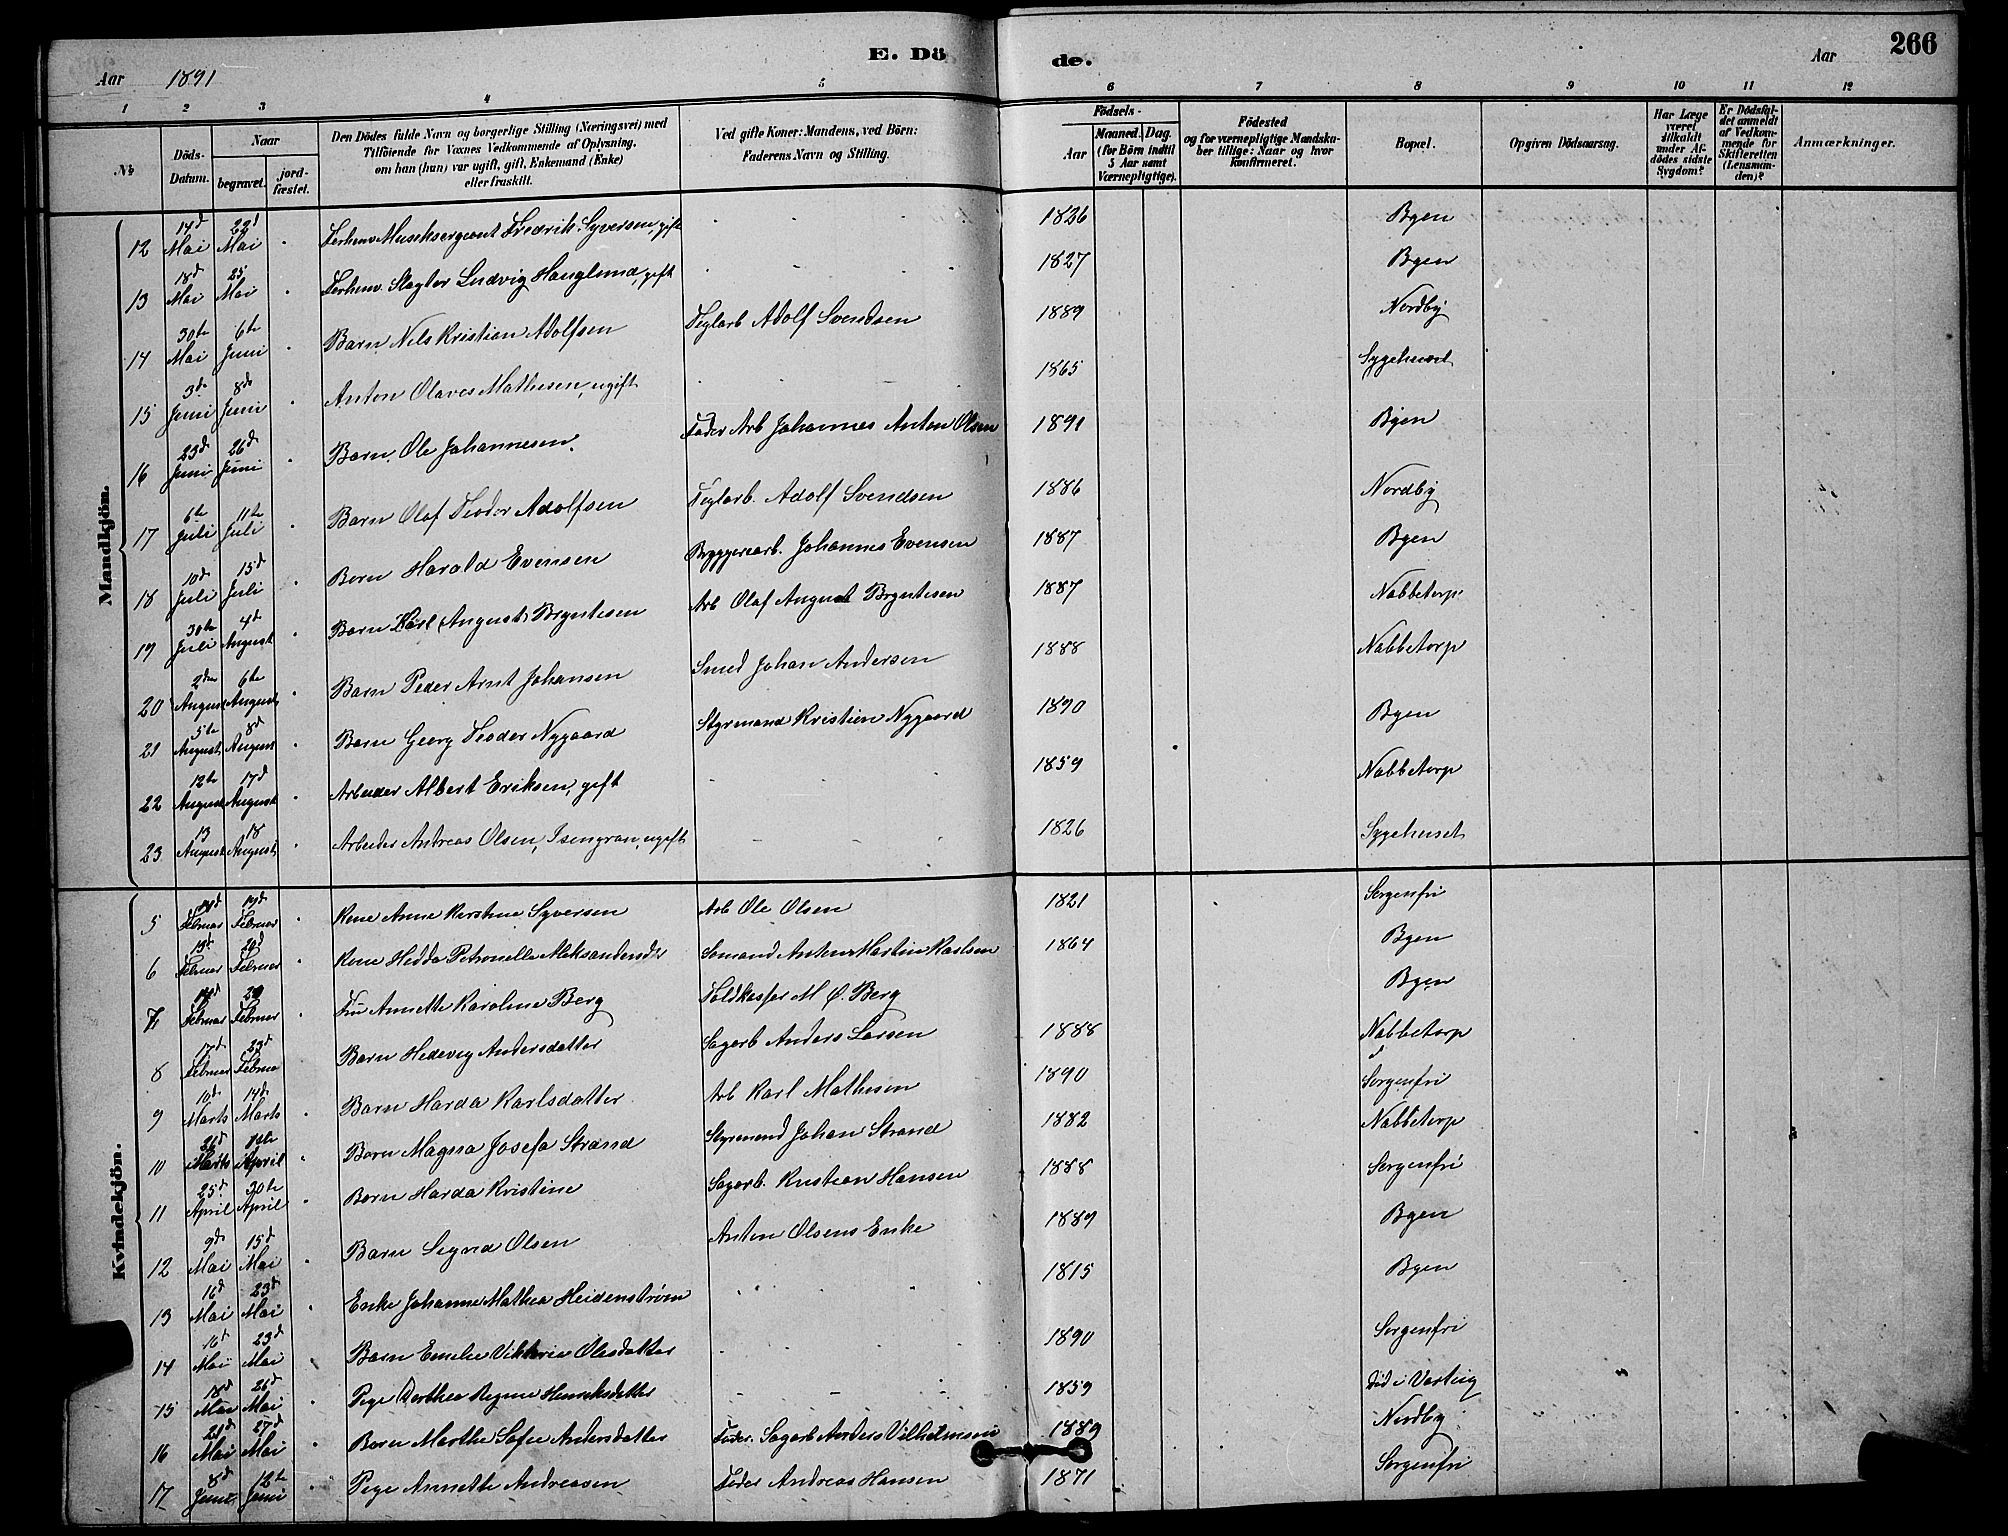 E. Dö de.
266
Aar 1891
Aar
1 2 3 4 5 6 7 8 9 10 11 12
№
Döds-Datum.
Naar
begravet.
jord-fæstet.
Den Dödes fulde Navn og borgerlige Stilling (Næringsvei) med
Tilföiende for Voxnes Vedkommende af Oplysning,
om han (hun) var ugift, gift, Enkemand (Enke)
eller fraskilt.
Ved gifte Koner: Mandens, ved Börn:
Faderens Navn og Stilling.
Födsels-
Aar
Maaned. Dag.
(for Börn indtil
5 Aar samt
Værnepligtige).
Födested
og for værnepligtige Mandska-
ber tillige: Naar og hvor
konfirmeret.
Bopæl.
Opgiven Dödsaarsag.
Har Læge
været
tilkaldt
under Af-
dödes sidste
Sygdom?
Er Dödsfal-
det anmeldt
af Vedkom-
mende for
Skifteretten
(Lensman-
den)?
Anmærkninger.
Mandkjön.
12 14d Mai 22d Mai Forhenv Musiksergeant Fredrik Syversen, gift 1826 Byen
13 18d Mai 25 Mai Forhenv. Slagter Ludvig Hauglund, gift 1827 Byen
14 30te Mai 6te Juni Barn Nils Kristian Adolfsen Teglarb Adolf Svendsen 1889 Nordby
15 3d Juni 8de Juni Anton Olaves Mathisen, ugift 1865 Sygehuset
16 23d Juni 26d Juni Barn Ole Johannesen. Fader Arb Johannes Anton Olsen 1891 Byen
17 6te Juli 11te Juli Barn Olaf Teodor Adolfsen Teglarb. Adolf Svendsen 1886 Nordby
18 10d Juli 15d Juli Barn Harald Evensen Bryggeriarb. Johannes Evensen 1887 Byen
19 30te Juli 4d August Barn Karl August Bryntesen Arb Olaf August Bryntesen 1887 Nabbetorp
20 2den August 6te August Barn Peder Arnt Johansen Smed Johan Andersen 1888 Nabbetorp
21 5te August 8d August Barn Georg Teodor Nygaard Styrmand Kristian Nygaard 1890 Byen
22 12te August 17d August Arbeider Albert Eriksen, gift 1859 Nabbetorp
23 13 August 18 August Arbeider Andreas Olsen, Isengran, ugift 1826 Sygehuset
Kvindekjön.
5 Februar 19d Februar Kone Anne Kirstine Syversen Arb Ole Olsen 1821 Sorgenfri
6 13d Februar 20d Februar Kone Hedda Petronelle Aleksandersdtr Sömand Anton Martin Karlsen 1864 Byen
7 Februar Februar Fru Annette Karoline Berg Toldkasser M. C. Berg Byen
8 17d Februar 23d Februa Barn Hedevig Andersdatter Sagarb Anders Larsen 1888 Nabbetorp
9 10d Marts 14d Marts Barn Harda Karlsdatter Arb Karl Mathisen 1890 Sorgenfri
10 26d Marts April Barn Magna Josefa Strand Styrmand Johan Strand 1882 Nabbetorp
11 25d April 30te April Barn Harda Kristine Sagarb. Kristian Hansen 1888 Sorgenfri
12 9de Mai 15d Mai Barn Signa Olsen Anton Olsens Enke 1889 Byen
13 16d Mai 23d Mai Enke Johanne Mathea Heidenström 1815 Byen
14 16d Mai 23d Mai Barn Emilie Viktoria Olesdatter 1890 Sorgenfri
15 18d Mai 26d Mai Pige Dorthea Regine Henriksdatter 1859 Död i Varteig
16 21d Mai 27d Mai Barn Marthe Sofie Andersdatter Fader. Sagarb Anders Vilhelmsen 1889 Nordby
17 8d Juni 12te Juni Pige Annette Andreasen Fader Andreas Hansen 1871 Sorgenfri